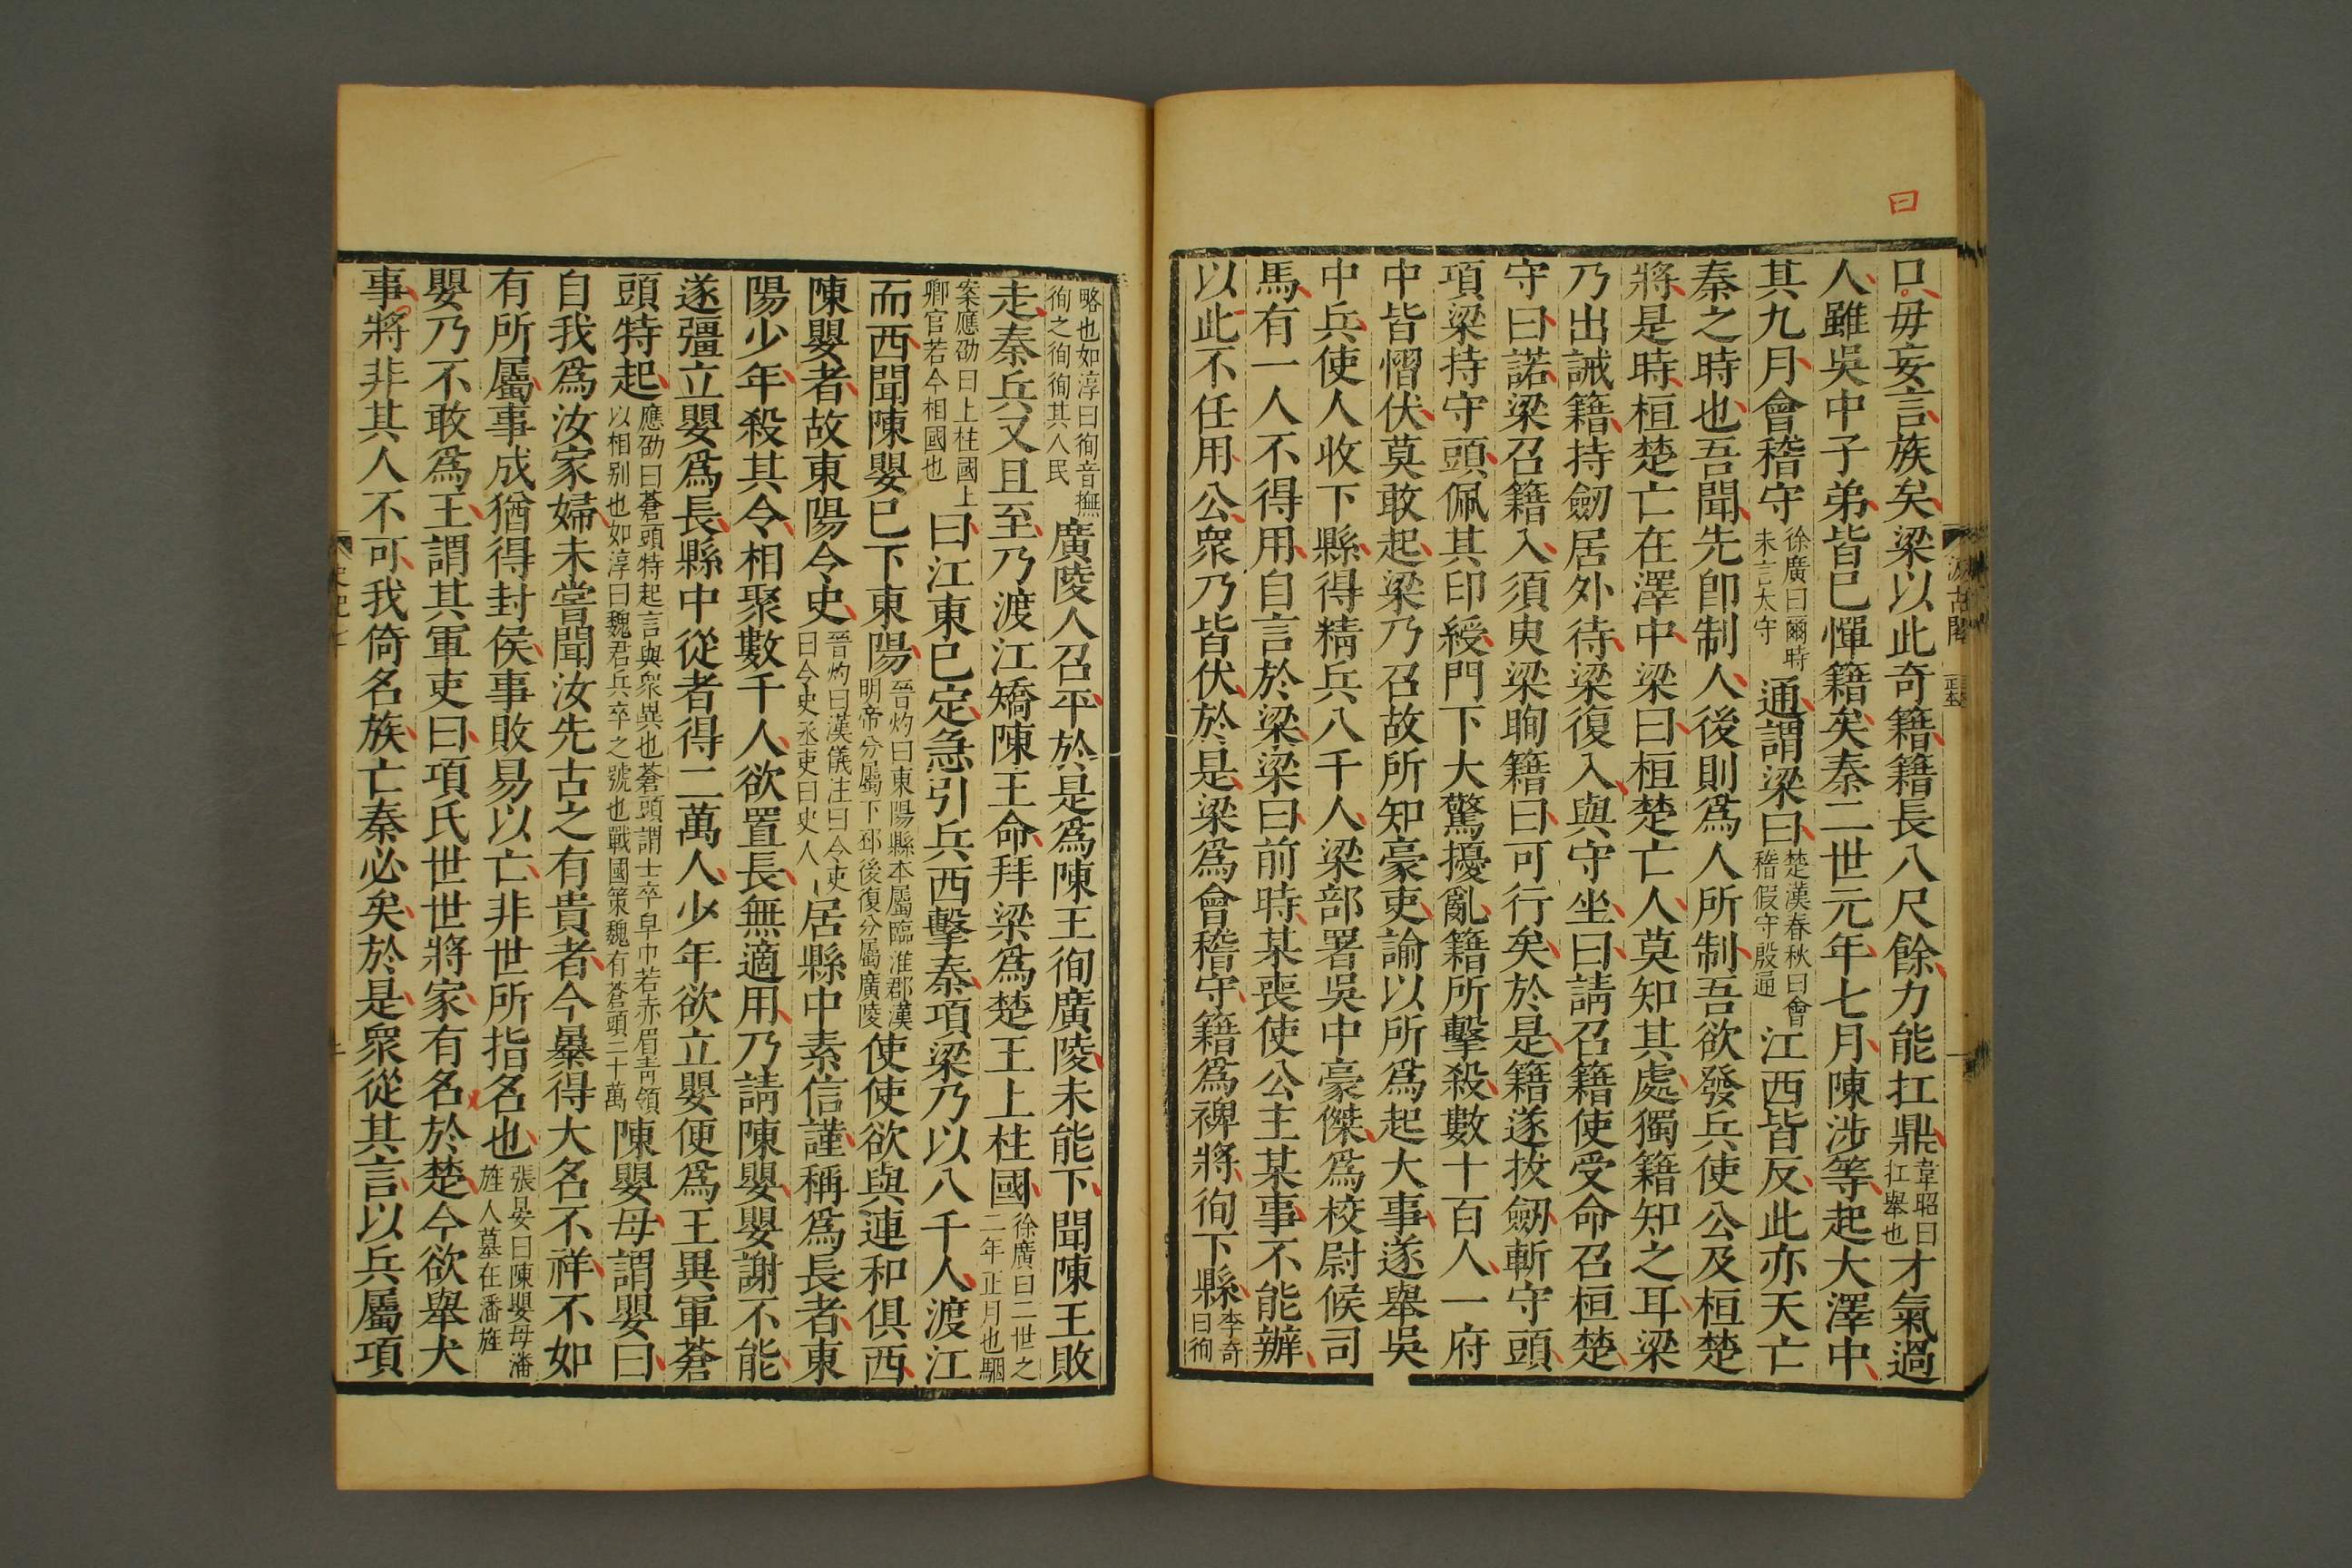 曰
口毋妄言族矣梁以此奇籍籍長八尺餘力能扛鼎韋昭曰扛舉也才氣過
人雖吳中子弟皆已憚籍矣秦二世元年七月陳涉等起大澤中
其九月會稽守徐廣曰爾時未言太守通謂梁曰楚漢春秋曰會稽假守殷通江西皆反此亦天亡
秦之時也吾聞先卽制人後則爲人所制吾欲發兵使公及桓楚
將是時桓楚亡在澤中梁曰桓楚亡人莫知其處獨籍知之耳梁
乃出誡籍持劒居外待梁復入與守坐曰請召籍使受命召桓楚
守曰諾梁召籍入須臾梁眴籍曰可行矣於是籍遂拔劒斬守頭
項梁持守頭佩其印綬門下大驚擾亂籍所擊殺數十百人一府
中皆慴伏莫敢起梁乃召故所知豪吏諭以所爲起大事遂舉吳
中兵使人收下縣得精兵八千人梁部署吳中豪傑爲校尉候司
馬有一人不得用自言於梁梁曰前時某喪使公主某事不能辦
以此不任用公衆乃皆伏於是梁爲會稽守籍爲裨將徇下縣李奇曰徇
汲古閣
略也如淳曰徇音撫徇之徇徇其人民廣陵人召平於是爲陳王徇廣陵未能下聞陳王敗
走秦兵又且至乃渡江矯陳王命拜梁爲楚王上柱國徐廣曰二世之二年正月也駰
案應劭曰上柱國上卿官若今相國也曰江東已定急引兵西擊秦項梁乃以八千人渡江
而西聞陳嬰已下東陽晉灼曰東陽縣本屬臨淮郡漢明帝分屬下邳後復分屬廣陵使使欲與連和俱西
陳嬰者故東陽令史晉灼曰漢儀注曰令吏曰令史丞吏曰史人居縣中素信謹稱爲長者東
陽少年殺其令相聚數千人欲置長無適用乃請陳嬰嬰謝不能
遂彊立嬰爲長縣中從者得二萬人少年欲立嬰便爲王異軍蒼
頭特起應劭曰蒼頭特起言與衆異也蒼頭謂士卒皁巾若赤眉青領以相別也如淳曰魏君兵卒之號也戰國策魏有蒼頭二十萬陳嬰母謂嬰曰
自我爲汝家婦未嘗聞汝先古之有貴者今暴得大名不祥不如
有所屬事成猶得封侯事敗易以亡非世所指名也張晏曰陳嬰母潘旌人墓在潘旌
嬰乃不敢爲王謂其軍吏曰項氏世世將家有名於楚今欲舉大
事將非其人不可我倚名族亡秦必矣於是衆從其言以兵屬項